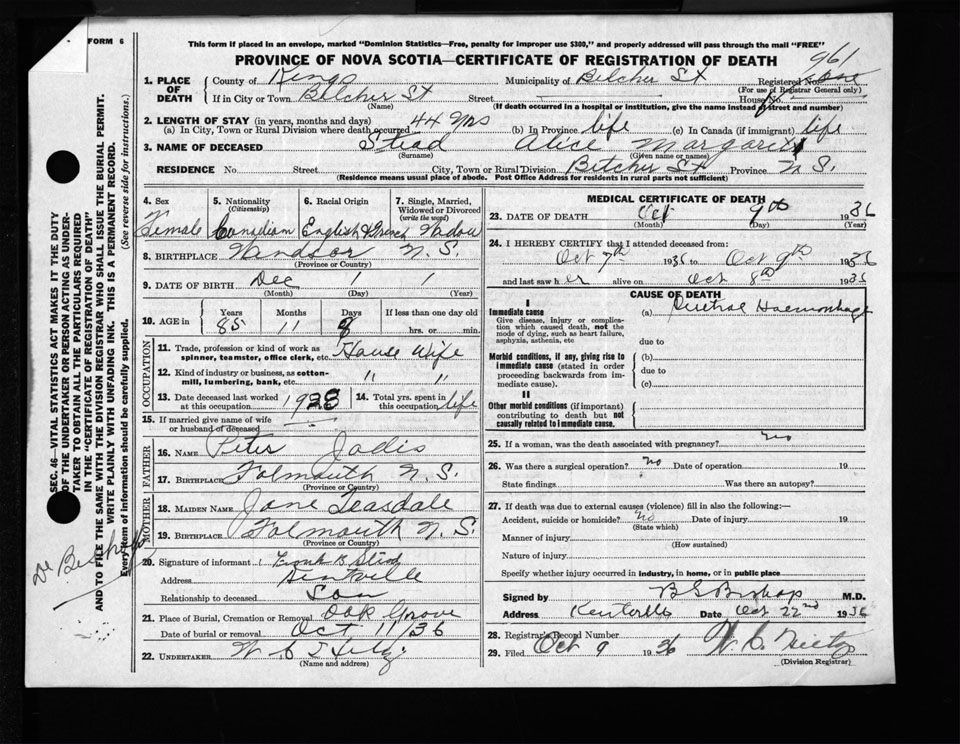 FORM 6
This form if placed in an envelope, marked "Dominion Statistics—Free, penalty for improper use $300," and properly addressed will pass through the mail "FREE"
PROVINCE OF NOVA SCOTIA—CERTIFICATE OF REGISTRATION OF DEATH
961
1. PLACE OF DEATH
County of Kings Municipality of Belcher St Registered No.
(For use of Registrar General only)
If in City or Town Belcher St Street House No.
(Name) (If death occurred in a hospital or institution, give the name instead of street and number)
2. LENGTH OF STAY (in years, months and days)
(a) In City, Town or Rural Division where death occurred 44 yrs (b) In Province life (c) In Canada (if immigrant) life
3. NAME OF DECEASED Stead Alice Margaret
(Surname) (Given name or names)
RESIDENCE No. Street City, Town or Rural Division Belcher St Province N S.
(Residence means usual place of abode. Post Office Address for residents in rural parts not sufficient)
4. Sex
Female
5. Nationality
(Citizenship)
Canadian
6. Racial Origin
English & French
7. Single, Married, Widowed or Divorced
(write the word)
Widow
8. BIRTHPLACE Windsor N. S.
(Province or Country)
9. DATE OF BIRTH Dec 1 1
(Month) (Day) (Year)
10. AGE in
Years Months Days If less than one day old
85 11 8 hrs. or min.
OCCUPATION
11. Trade, profession or kind of work as spinner, teamster, office clerk, etc. House Wife
12. Kind of industry or business, as cotton-mill, lumbering, bank, etc. " "
13. Date deceased last worked at this occupation 1928
14. Total yrs. spent in this occupation life
15. If married give name of wife or husband of deceased
FATHER
16. NAME Peter Jadis
17. BIRTHPLACE Falmouth N. S.
(Province or Country)
MOTHER
18. MAIDEN NAME Jane Teasdale
19. BIRTHPLACE Falmouth N. S.
(Province or Country)
20. Signature of informant Frank B Sted
Address Kentville
Relationship to deceased Son
21. Place of Burial, Cremation or Removal Oak Grove
Date of burial or removal Oct 11/36
22. UNDERTAKER W C T
(Name and address)
MEDICAL CERTIFICATE OF DEATH
23. DATE OF DEATH Oct 9th 1936
(Month) (Day) (Year)
24. I HEREBY CERTIFY that I attended deceased from:
Oct 7th 1936 to Oct 9th 1936
and last saw her alive on Oct 8th 1936
CAUSE OF DEATH
I
Immediate cause
Give disease, injury or complication which caused death, not the mode of dying, such as heart failure, asphyxia, asthenia, etc
(a) Haemorrhage
due to
Morbid conditions, if any, giving rise to immediate cause (stated in order proceeding backwards from immediate cause).
(b)
due to
(c)
II
Other morbid conditions (if important) contributing to death but not causally related to immediate cause.
25. If a woman, was the death associated with pregnancy? no
26. Was there a surgical operation? no Date of operation 19
State findings Was there an autopsy?
27. If death was due to external causes (violence) fill in also the following:—
Accident, suicide or homicide? no Date of injury 19
(State which)
Manner of injury
(How sustained)
Nature of injury
Specify whether injury occurred in industry, in home, or in public place
Signed by B S Bishop M.D.
Address Kentville Date Oct 22nd 1936
28. Registrar's Record Number
29. Filed Oct 9 1936 W. C.
(Division Registrar)
SEC. 46—VITAL STATISTICS ACT MAKES IT THE DUTY
OF THE UNDERTAKER OR PERSON ACTING AS UNDER-
TAKER TO OBTAIN ALL THE PARTICULARS REQUIRED
IN THE "CERTIFICATE OF REGISTRATION OF DEATH"
AND TO FILE THE SAME WITH THE DIVISION REGISTRAR WHO SHALL ISSUE THE BURIAL PERMIT.
WRITE PLAINLY WITH UNFADING INK. THIS IS A PERMANENT RECORD.
Every item of information should be carefully supplied. (See reverse side for instructions.)
Dr Bishop